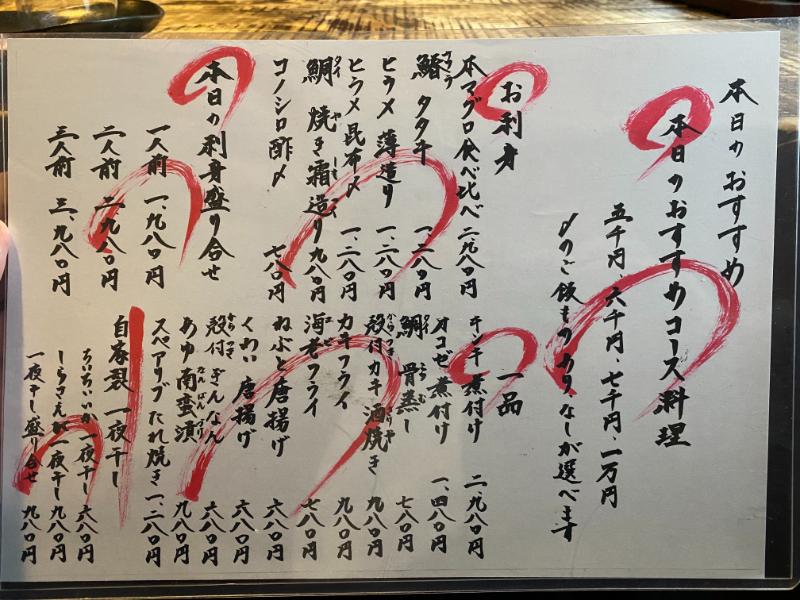 本日のおすすめ
本日のおすすめコース料理
五千円、六千円、七千円、一万円
〆のご飯もつあり、なしが選べます
お刺身
本マグロ食べ比べ 二、九八〇円
鰆 タタキ 一、二八〇円
ヒラメ 薄造り 一、二八〇円
ヒラメ昆布〆 一、二八〇円
鯛 焼き霜造り 九八〇円
コノシロ酢〆 七八〇円
本日の刺身盛り合せ
一人前 一、九八〇円
二人前 二、九八〇円
三人前 三、九八〇円
一品
キンキ煮付け 二、九八〇円
オコゼ煮付け 一、四八〇円
鯛 骨蒸し 七八〇円
殻付カキ 酒焼き 九八〇円
カキフライ 九八〇円
海老フライ 七八〇円
ねぶと唐揚げ 六八〇円
くわい 唐揚げ 六八〇円
殻付ぎんなん 六八〇円
あゆ南蛮漬 九八〇円
スペアリブたれ焼き 一、二八〇円
自家製 一夜干し
ちいちいいか 一夜干し 六八〇円
しらさえび一夜干し 九八〇円
一夜干し盛り合せ 九八〇円